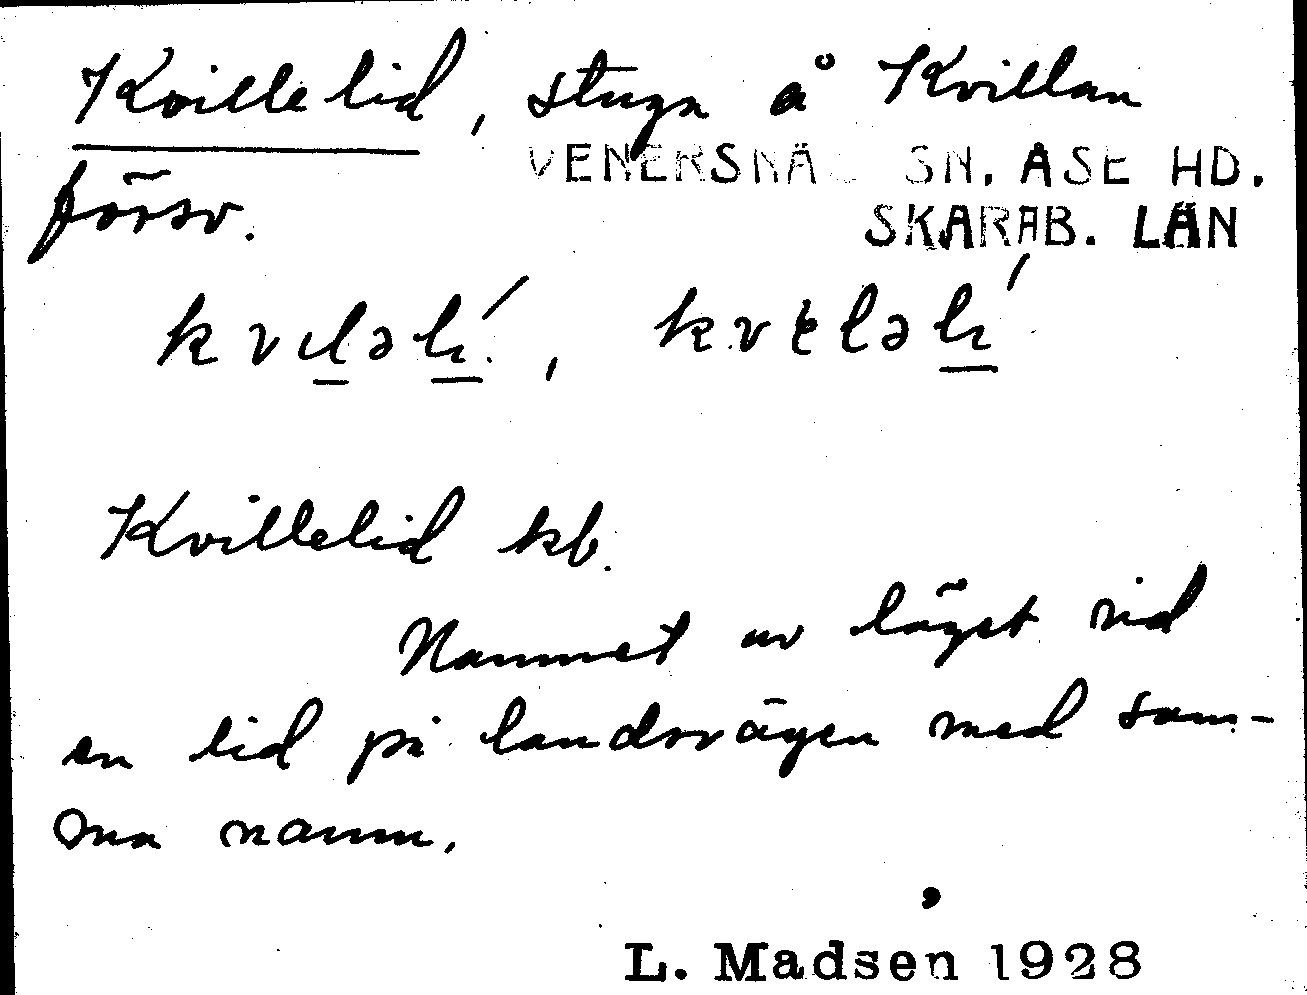 Kvillelid, stuga å Kvillan
VENERSNÄS SN. ÅSE HD.
försv.
SKARAB. LÄN
kvɩləlɩ́, kvɛləlɩ́
Kvillelid kb.
Namnet av läget vid
en lid på landsvägen med sam-
ma namn.
L. Madsen 1928